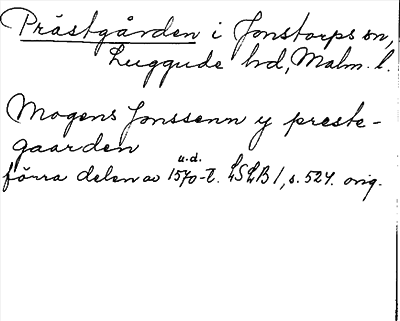 Prästgården i Jonstorps sn,
Luggude hd, Malm. l.
Mogens Jonssenn y preste-
gaarden
u.d.
förra delen av 1570-t. LSLB 1, s. 524. orig.